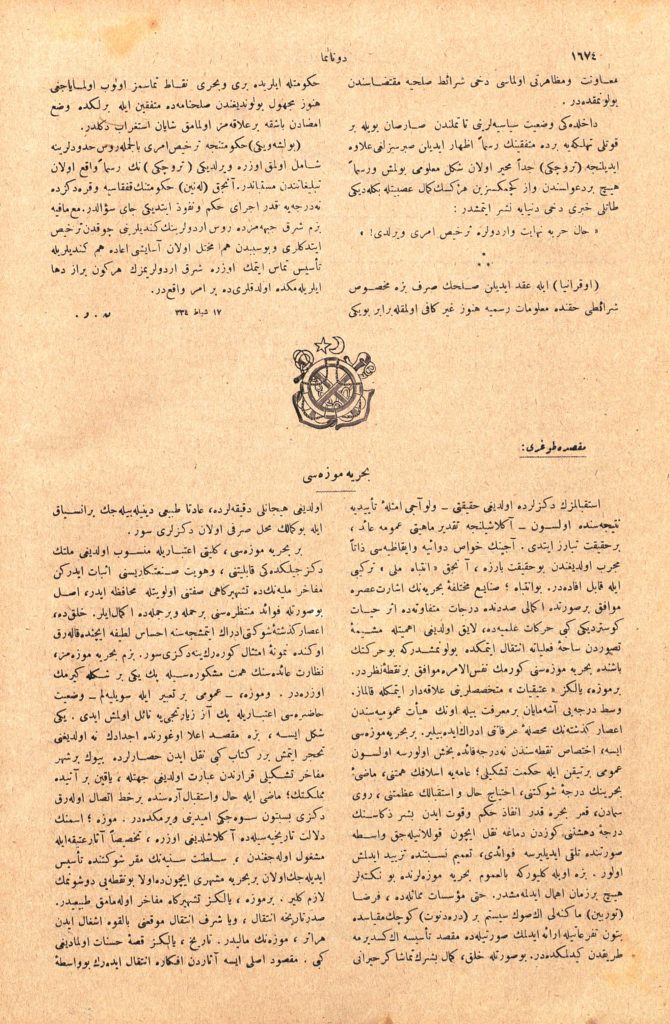 ١٦٧٤
دونانما
معاونت ومظاهرتی اولماسی دخی شرائط صلحیه مقتضاسندن
بولونمقده‌در.
داخلده‌کی وضعیت سیاسیه‌لرینی تأمیلدن صارصان بویله بر
قوتلی تهلکه‌یه برده متفقینك رسماً اظهار ایدیلن صبرسزلغی علاوه
ایدیلنجه (تروچکی) جداً محیر اولان شکل معلومی بولمش ورسماً
هیچ بر دعواسندن واز کچمکسزین هرکسك کمال عصبیتله بکله‌دیکی
طاتلی خبری دخی دنیایه نشر ایتمشدر :
« حال حربه نهایت واردولره ترخیص امری ویرلدی! »
(اوقرانیا) ایله عقد ایدیلن صلحك صرف بزه مخصوص
شرائطی حقنده معلومات رسمیه هنوز غیر کافی اولمقله برابر بویکی
حکومتله ایلریده بری وبحری نقاط تماسمز اولوب اولمایاجغی
هنوز مجهول بولوندیغندن صلحنامه‌ده متفقین ایله برلکده وضع
امضادن باشقه بر علاقه‌مز اولمامق شایان استغراب دکلدر.
(بولشه‌ویکی) حکومتنجه ترخیص امری بالجمله روس حدودلرینه
شامل اولمق اوزره ویرلدیکی (تروچکی) نك رسماً واقع اولان
تبلیغاتندن مستبانددر. آنجق (له‌نین) حکومتنك فنقاسیه وقره‌کرده
نه‌درجه‌یه قدر اجرای حکم ونفوذ ایتدیکی جای سؤالدر. مع‌مافیه
بزم شرق جبهه‌مزده روس اردولرینك کندیلرینی چوقدن ترخیص
ایتدکلری وبوسببدن هم مختل اولان آسایشی اعاده هم کندیلریله
تأسیس تماس ایتمك اوزره شرق اردولریمزك هرکون براز دها
ایلریله‌مکده اولدقلری ده بر امر واقع‌در.
١٧ شباط ٣٣٤
ن . و .
مقصده طوغری :
بحریه موزه‌سی
استقبالمزك دکزلرده اولدیغی حقیقتی ـ ولو آجی امثله تأییدیه
نتیجه‌سنده اولسون ـ آکلاشیلنجه تقدیر ماهیتی عمومه عائد ،
بر حقیقت تبارز ایتدی . آجینك خواص دوائیه وایقاظیه‌سی ذاتاً
مجرب اولدیغندن بو حقیقت بارزه ، آنجق « انتباه ملی » ترکیبی
ایله قابل افاده‌در. بو انتباه ؛ صنایع مختلفهٔ بحریه‌نك اشارت عصره
موافق بر صورتده اکمالی صددنده درجات متفاوته‌ده اثر حیات
کوستردیکی کبی حرکات علمیه‌ده، لایق اولدیغی اهمیتله مشیمهٔ
تصوردن ساحهٔ فعلیاته انتقال ایتمکده بولونمشدرکه بو حرکتك
باشنده بحریه موزه‌سنی کورمك نفس‌الامره موافق بر نقطهٔ نظردر.
بر موزه، یالکز « عتیقیات » متخصصلرینی علاقه‌دار ایتمکله قالماز.
وسط درجه‌یی آشه‌مایان بر معرفت بیله اونك هیأت عمومیه‌سندن
اعصار کذشته‌نك محصلهٔ عرفانی ادراك ایده‌بیلیر. بر بحریه موزه‌سی
ایسه، اختصاص نقطه‌سندن نه‌درجه فائده بخش اولورسه اولسون
عمومی بر تیقن ایله حکمت تشکیلی؛ عامه‌یه اسلافك همتنی، ماضئ
بحرینك درجهٔ شوکتنی، احتیاج حال و استقبالك عظمتنی ، روی
سمادن، قعر بحره قدر انفاذ حکم وقوت ایدن بشر ذکاسنك
درجهٔ دهشتنی کوزدن دماغه نقل ایچون قوللانیله‌جق واسطه
صورتنده تلقی ایدیلیرسه فوائدی، تعمیم نسبتنده تزیید ایدلمش
اولور . بزه اویله کلیورکه بالعموم بحریه موزه‌لرنده بو نکته‌لر
هیچ بر زمان اهمال ایدلمه‌مشدر. حتی مؤسسات مماثله‌ده ، فرضا
(توربین) ماکنه‌لی اك صوك سیستم بر (دره‌دنوت) کوچك مقیاسده
بتون تفرعاتیله ارائه ایدلمك صورتیله‌ده مقصد تأسیسه اك کسدیرمه
طریقدن کیدلمکده‌در. بو صورتله خلق، کمال بشرك تماشاکر حیرانی
اولدیغی هیجانلی دقیقه‌لرده، عادتا طبیعی دینیله‌بیله‌جك بر انسیاق
ایله بو کمالك محل صرفی اولان دکزلری سور .
بر بحریه موزه‌سی، کلیتی اعتباریله منسوب اولدیغی ملتك
دکزجیلکده‌کی قابلیتنی ، وهویت صنعتکاریسنی اثبات ایدرکن
مفاخر ملیه‌نك ده تشهیرکاهی صفتنی اولویتله محافظه ایدر، اصل
بو صورتله فوائد منتظره‌سنی بر حمله وبر جمله‌ده اکمال ایلر. خلق‌ده،
اعصار کذشته شوکتنی ادراك ایتمشجه‌سنه احساس لطیفه ایچنده قاله‌رق
اوکنده نمونهٔ امتثال کوره‌رك ینه دکزی سور. بزم بحریه موزه‌مز،
نظارت عائده‌سنك همت مشکوره‌سیله پك یکی بر شکله کیرمك
اوزره‌در . وموزه، ـ عمومی بر تعبیر ایله سویلیه‌لم ـ وضعیت
حاضره‌سی اعتباریله پك آز زیارتجی‌یه نائل اولمش ایدی . یکی
شکل ایسه ، بزه مقصد اعلا اوغورنده اجدادك نه اولدیغنی
تحجر ایتمش برر کتاب کبی نقل ایدن حصارلرده بیوك بر شهر
مفاخر تشکیلی قرارندن عبارت اولدیغی جهتله ، یاقین بر آتیده
مملکتك؛ ماضی ایله حال واستقبال آره‌سنده بر خط اتصال اوله‌رق
دکزی بستون سوه‌جکی امیدینی ویرمکده‌در . موزه ؛ اسمنك
دلالت تاریخیه‌سیله‌ده آکلاشلدیغی اوزره ، تخصصاً آثار عتیقه ایله
مشغول اوله‌جغندن ، سلطنت سنه‌نك مقر شوکتنده تأسیس
ایدیله‌جك اولان بر بحریه مشهری ایچون‌ده اولا بو نقطه‌یی دوشونمك
لازم کلیر . بر موزه ، یالکز تشهیرکاه مفاخر اوله‌مامق طبیعیدر.
صدر تاریخه انتقال ، ویا شرف انتقال موقعنی بالقوه اشغال ایدن
هر اثر ، موزه‌نك مالیدر. تاریخ ، یالکز قصهٔ حسنات اولمادیغی
کبی . مقصود اصلی ایسه آثاردن افکاره انتقال ایده‌رك بو واسطهٔ